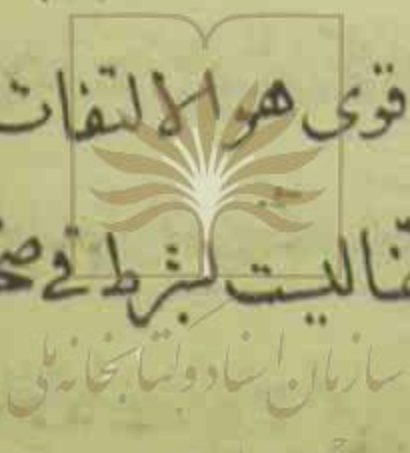 قوى هو الالتفات
ليست بشرط في صح
سازمان اسناد و کتابخانه ملی